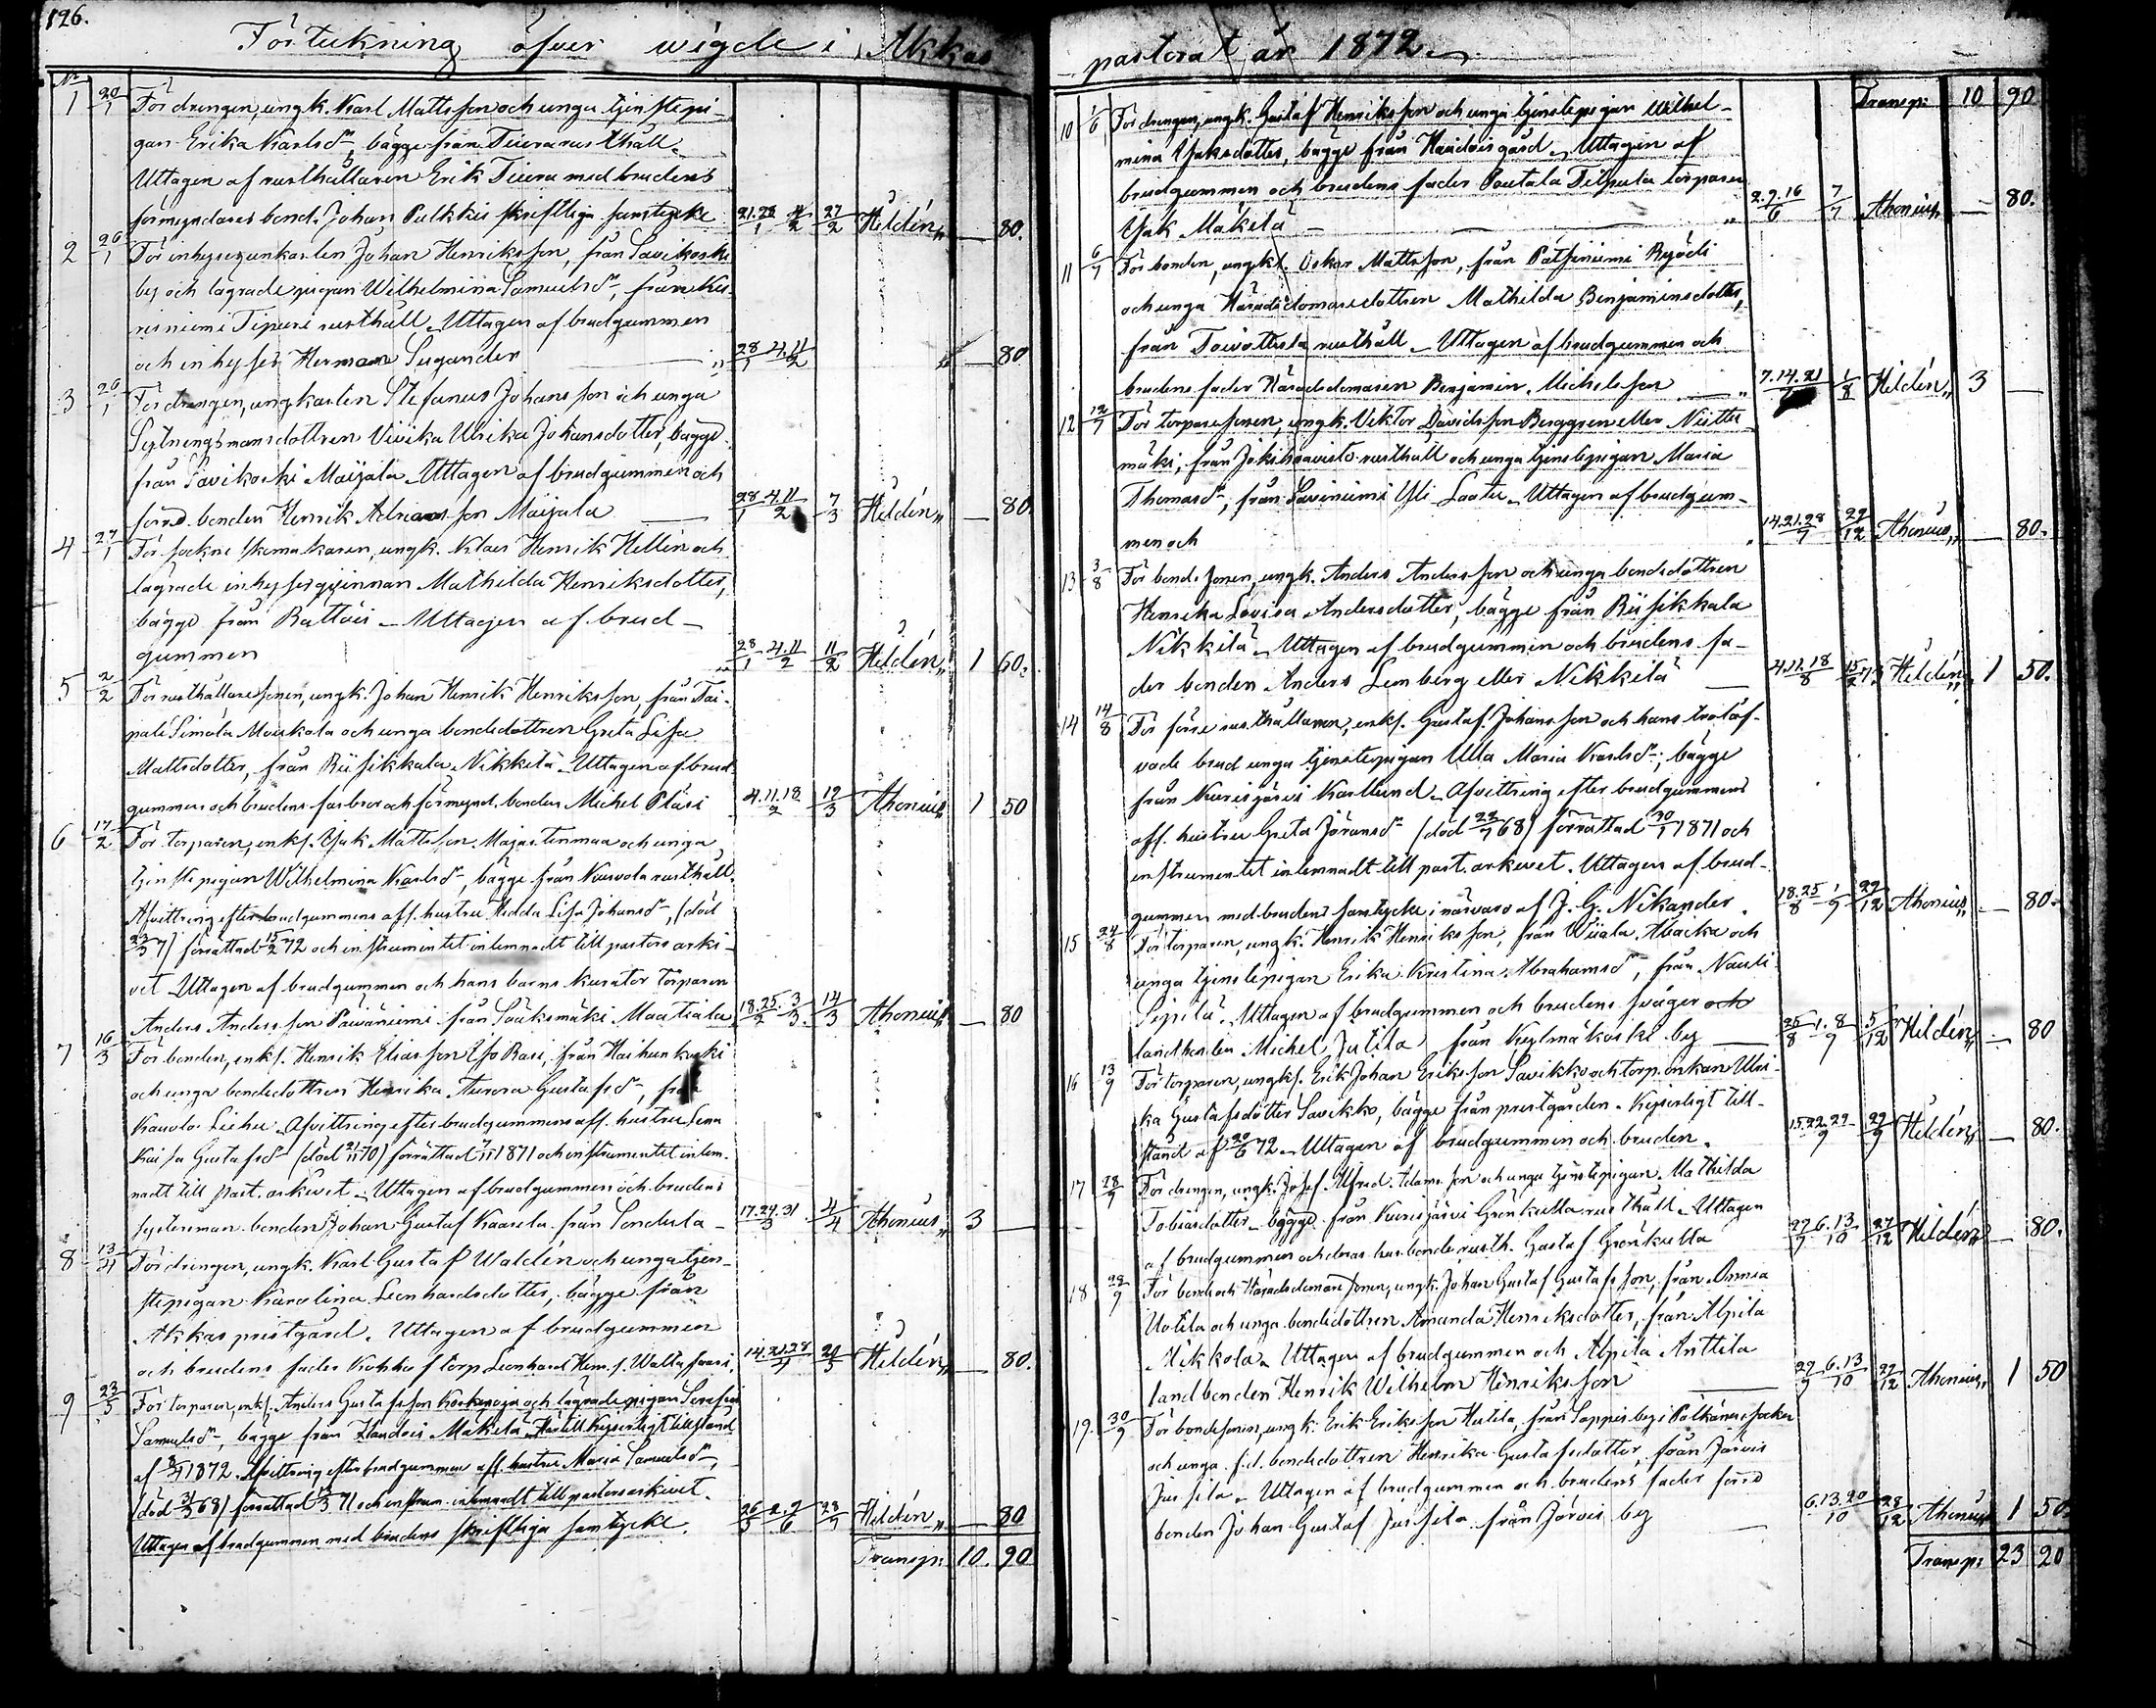 126.
Förtekning öfver wigde i Akkas
No
1 20/1 För drengen, ungk. Karl Mattsson och unga tjenstepi-
gan Erika Karlsdr, bägge från Tiura rusthåll.
Uttagen af rusthållaren Erik Tiura med brudens
förmyndares bond. Johan Pulkkis skriftliga samtycke 21.28/1 4/2 27/2 Hildén „ — 80.
2 26/1 För inhysesunkarlen Johan Henriksson, från Savikoski
by och lägrade pigan Wilhelmina Samuelsdr, från
Tipuri rusthåll. Uttagen af brudgummen
och inhyses Herman Sugander — „ 28/1 4.11/2 — 80
3 26/1 För drengen, ungkarlen Stefanus Johansson och unga
Sextningsmansdottren Vivika Ulrika Johansdotter, bägge
från Savikoski Maijala. Uttagen af brudgummen och
förre bonden Henrik Adriansson Maijala — 28/1 4.11/2 7/3 Hildén „ — 80.
4 27/1 För sockne skomakaren, ungk. Klaes Henrik Hellén och
lägrade inhysesqvinnan Mathilda Henriksdotter,
bägge från Rattois – Uttagen af brud-
gummen 28/1 4.11/2 11/2 Hildén „ 1 60.
5 2/2 För rusthållaresonen, ungk. Johan Henrik Henriksson, från Tai-
pale Simola Moukola och unga bondedottren Greta Lisa
Mattsdotter, från Riisikkala Nikkilä – Uttagen af brud-
gummen och brudens farbror och förmynd. bonden Michel Pläsi 4.11.18/2 12/3 Ahonius 1 50
6 17/2 För torparen, enkl. Isak Mattsson Majastenmaa och unga
tjenstepigan Wilhelmina Karlsdr, bägge från Kurvola rusthåll.
Afvittring efter brudgummens afl. hustru Hedda Lisa Johansdr, (död
23/3 71) förrättad 15/2 72 och instrumentet inlemnadt till pastors arki-
vet – Uttagen af brudgummen och hans barns kurator torparen
Anders Andersson Päiväniemi från Sääksmäki Maatiala 18.25/2 3/3 14/3 Ahonius „ — 80
7 16/3 För bonden, enkl. Henrik Eliasson Iso Rasi, från Haihunkoski
och unga bondedottren Henrika Aurora Gustafsdr, från
Kauvola Lieha. Afvittring efter brudgummens afl. hustru Lena
Kaisa Gustafsdr (död 21/11 70) förrättad 7/11 1871 och instrumentet inlem-
nadt till past. arkivet. Uttagen af brudgummen och brudens
systerman bonden Johan Gustaf Kaarela från Sondula – 17.24.31/3 4/4 Ahonius „ 3 —
8 13/4 För drengen, ungk. Karl Gustaf Waldén och unga tjen-
stepigan Karolina Leonhardsdotter, bägge från
Akkas prestgård. Uttagen af brudgummen
och brudens fader Kokko f torp. Leonhard Hem. f. Waltasaari. 14.21.28/4 20/5 Hildén „ — 80.
9 23/5 För torparen, enkl. Anders Gustafsson Koskenoja och lägrade pigan Serafina
Samuelsdr, bägge från Haudois Mäkelä. Härtill Kejserligt tillstånd
af 8/4 1872. Afvittring efter brudgummens afl. hustru Maria Samuelsdr,
(död 31/3 68) förrättad 13/3 71 och instrum. inlemnadt till pastorsarkivet.
Uttagen af brudgummen med brudens skriftliga samtycke. 26/5 2.9/6 28/7 Hildén „ — 80
Transp: 10. 90
pastorat år 1872.
Transp: 10 90
10 1/6 För drengen, ungk. Gustaf Henriksson och unga tjenstepigan Wilhel-
mina Isaksdotter, bägge från Haudois gård. Uttagen af
brudgummen och brudens fader Poutala Tilpula torparen
Isak Mäkelä — „ 2.9.16/6 7/7 Ahonius „ — 80.
11 6/7 För bonden, ungkl. Oskar Mattsson, från Pätsiniemi Ryödi
och unga Häradsdomaredottren Mathilda Benjaminsdotter,
från Toivottula rusthåll – Uttagen af brudgummen och
brudens fader Häradsdomaren Benjamin Michelsson — „ 7.14.21/7 1/8 Hildén „ 3 —
12 12/7 För torparesonen, ungk. Viktor Davidsson Berggren eller Niitty-
mäki, från Jokihaavisto rusthåll och unga tjenstepigan Maria
Thomasdr, från Saviniemi Yli Laato – Uttagen af brudgum-
men och „ 14.21.28/7 29/12 Ahonius „ — 80.
13 3/8 För bondesonen, ungk. Anders Andersson och unga bondedottren
Henrika Lovisa Andersdotter, bägge från Riisikkala
Nikkilä – Uttagen af brudgummen och brudens fa-
der bonden Anders Lemberg eller Nikkilä — 4.11.18/8 15/2 73 Hildén „ 1 50.
14 14/8 För förre rusthållaren, enkl. Gustaf Johansson och hans trolof-
vade brud unga tjenstepigan Ulla Maria Karlsdr; bägge
från Kurisjärvi Karlund. Afvittring efter brudgummens
afl. hustru Greta Jöransdr (död 22/7 68) förrättad 30/1 1871 och
instrumentet inlemnadt till past. arkivet. Uttagen af brud-
gummen med brudens samtycke i närvaro af J. G. Nikander 18.25/8 1/9 22/12 Ahonius „ — 80.
15 24/8 För torparen, ungk. Henrik Henriksson, från Wiiala Alaicka och
unga tjenstepigan Erika Kristina Abrahamsdr, från Nauli
Sipilä. Uttagen af brudgummen och brudens svåger och
landbonden Michel Jutila från Kylmäkoski by — 25/8 1.8/9 5/12 Hildén „ — 80
16 13/9 För torparen, ungkl. Erik Johan Eriksson Savikko och torp. enkan Ulri-
ka Gustafsdotter Savikko, bägge från prestgården. Kejserligt till-
stånd af 20/6 72. Uttagen af brudgummen och bruden. 15.22.29/9 29/9 Hildén „ — 80.
17 28/9 För drengen, ungk. Josef Alfred Adamsson och unga tjenstepigan Mathilda
Tobiasdotter – bägge från Kurisjärvi Grönkulla rusthåll – Uttagen
af brudgummen och deras husbonde rusth. Gustaf Grönkulla 29/9 6.13/10 27/12 Hildén „ — 80.
18 28/9 För bond och Häradsdomaresonen, ungk. Johan Gustaf Gustafsson, från Annia
Uotila och unga bondedottren Amanda Henriksdotter, från Alpila
Mikkola. Uttagen af brudgummen och Alpila Anttila
landbonden Henrik Wilhelm Henriksson — 29/9 6.13/10 27/12 Ahonius „ 1 50
19. 30/9 För bondesonen, ungk. Erik Eriksson Hutila, från Sappis by i Pälkäne socken
och unga f.d. bondedottren Henrika Gustafsdotter, från Järvis
Jussila – Uttagen af brudgummen och brudens fader förre
bonden Johan Gustaf Jussila från Järvis by — 6.13.20/10 28/12 Ahonius 1 50.
Transp: 23 20